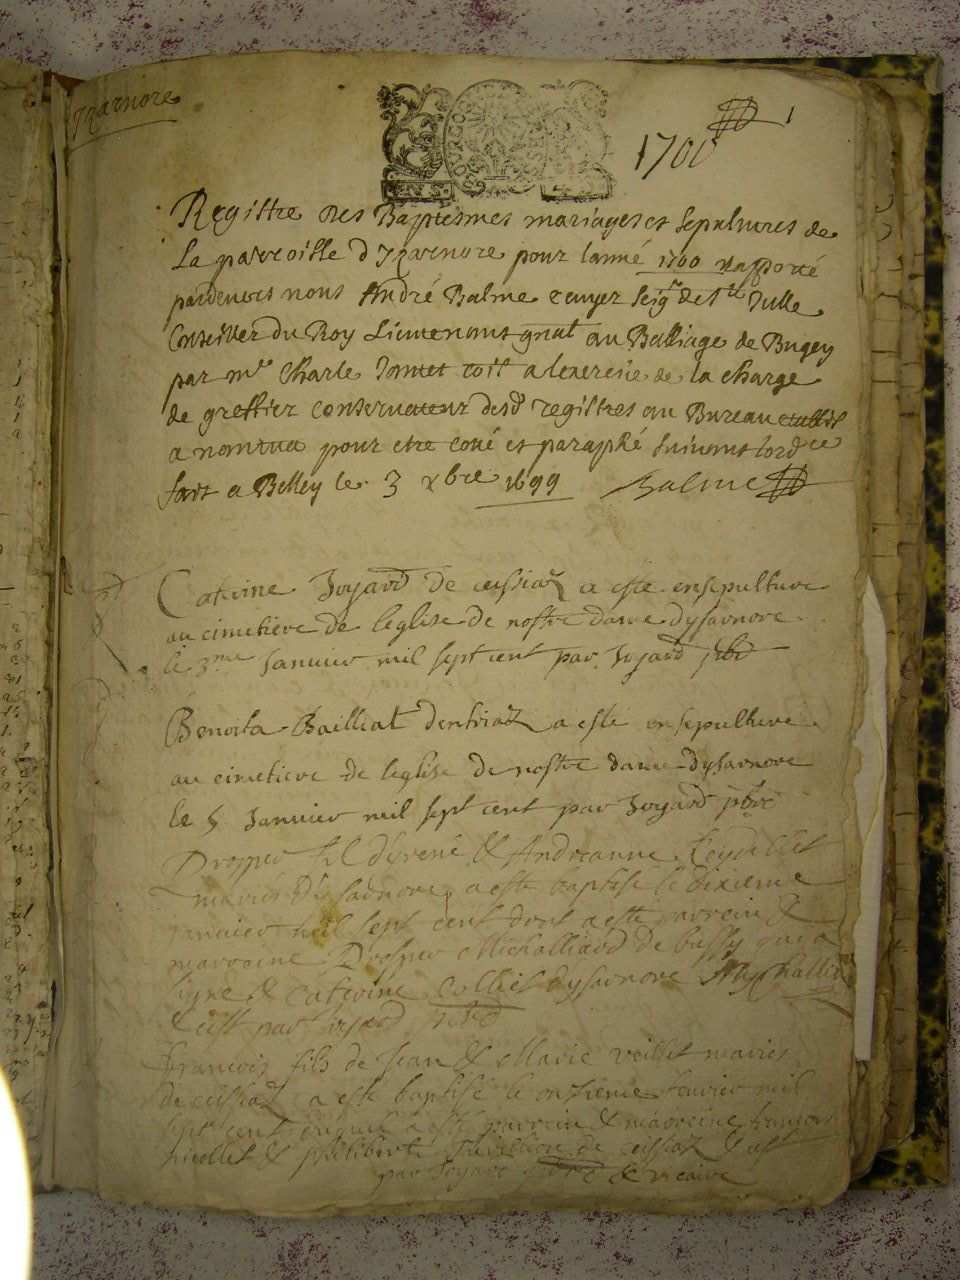 Yzarnore
1
1700
Registre des Baptesmes mariages et sepultures de
La parroisse d Yzarnore pour lanné 1700 rapporté
pardevers nous André Balme escuyer seigr de Ste Julle
Conseiller du Roy Lieutenant gnal au Balliage de Bugey
par mre Charle commis à lexercise de la charge
de greffier conservateur desd registres au Bureau
a nantua pour etre coté et paraphé suivant lordce
fait a Belley le 3 xbre 1699 Balme
Caterine Joyard de ceissiaz a este ensepulture
au cimetiere de leglise de nostre dame dysarnore
le 3me Janvier mil sept cent par Joyard pbre
Benoita Bailliat dentriaz a este ensepulture
au cimetiere de leglise de nostre dame dysarnore
le 5 Janvier mil sept cent par Joyard pbre
Prosper fil de rené & Andreanne Reydellet
mariés dysarnore a este baptisé le dixieme
janvier mil sept cent dont a esté parrein &
marreine Prosper Michalliard de bussy qui a
signe & Caterine Colliet dysarnore
& est par Joyard pbre
francois fils de Jean & Marie veillet mariés
de ceissiaz a este baptisé le onzieme fevrier mil
sept cent duquel a esté parrein & marreine francois
nicollet & philiberte de ceissiaz & est
par Joyard pbre & vicaire